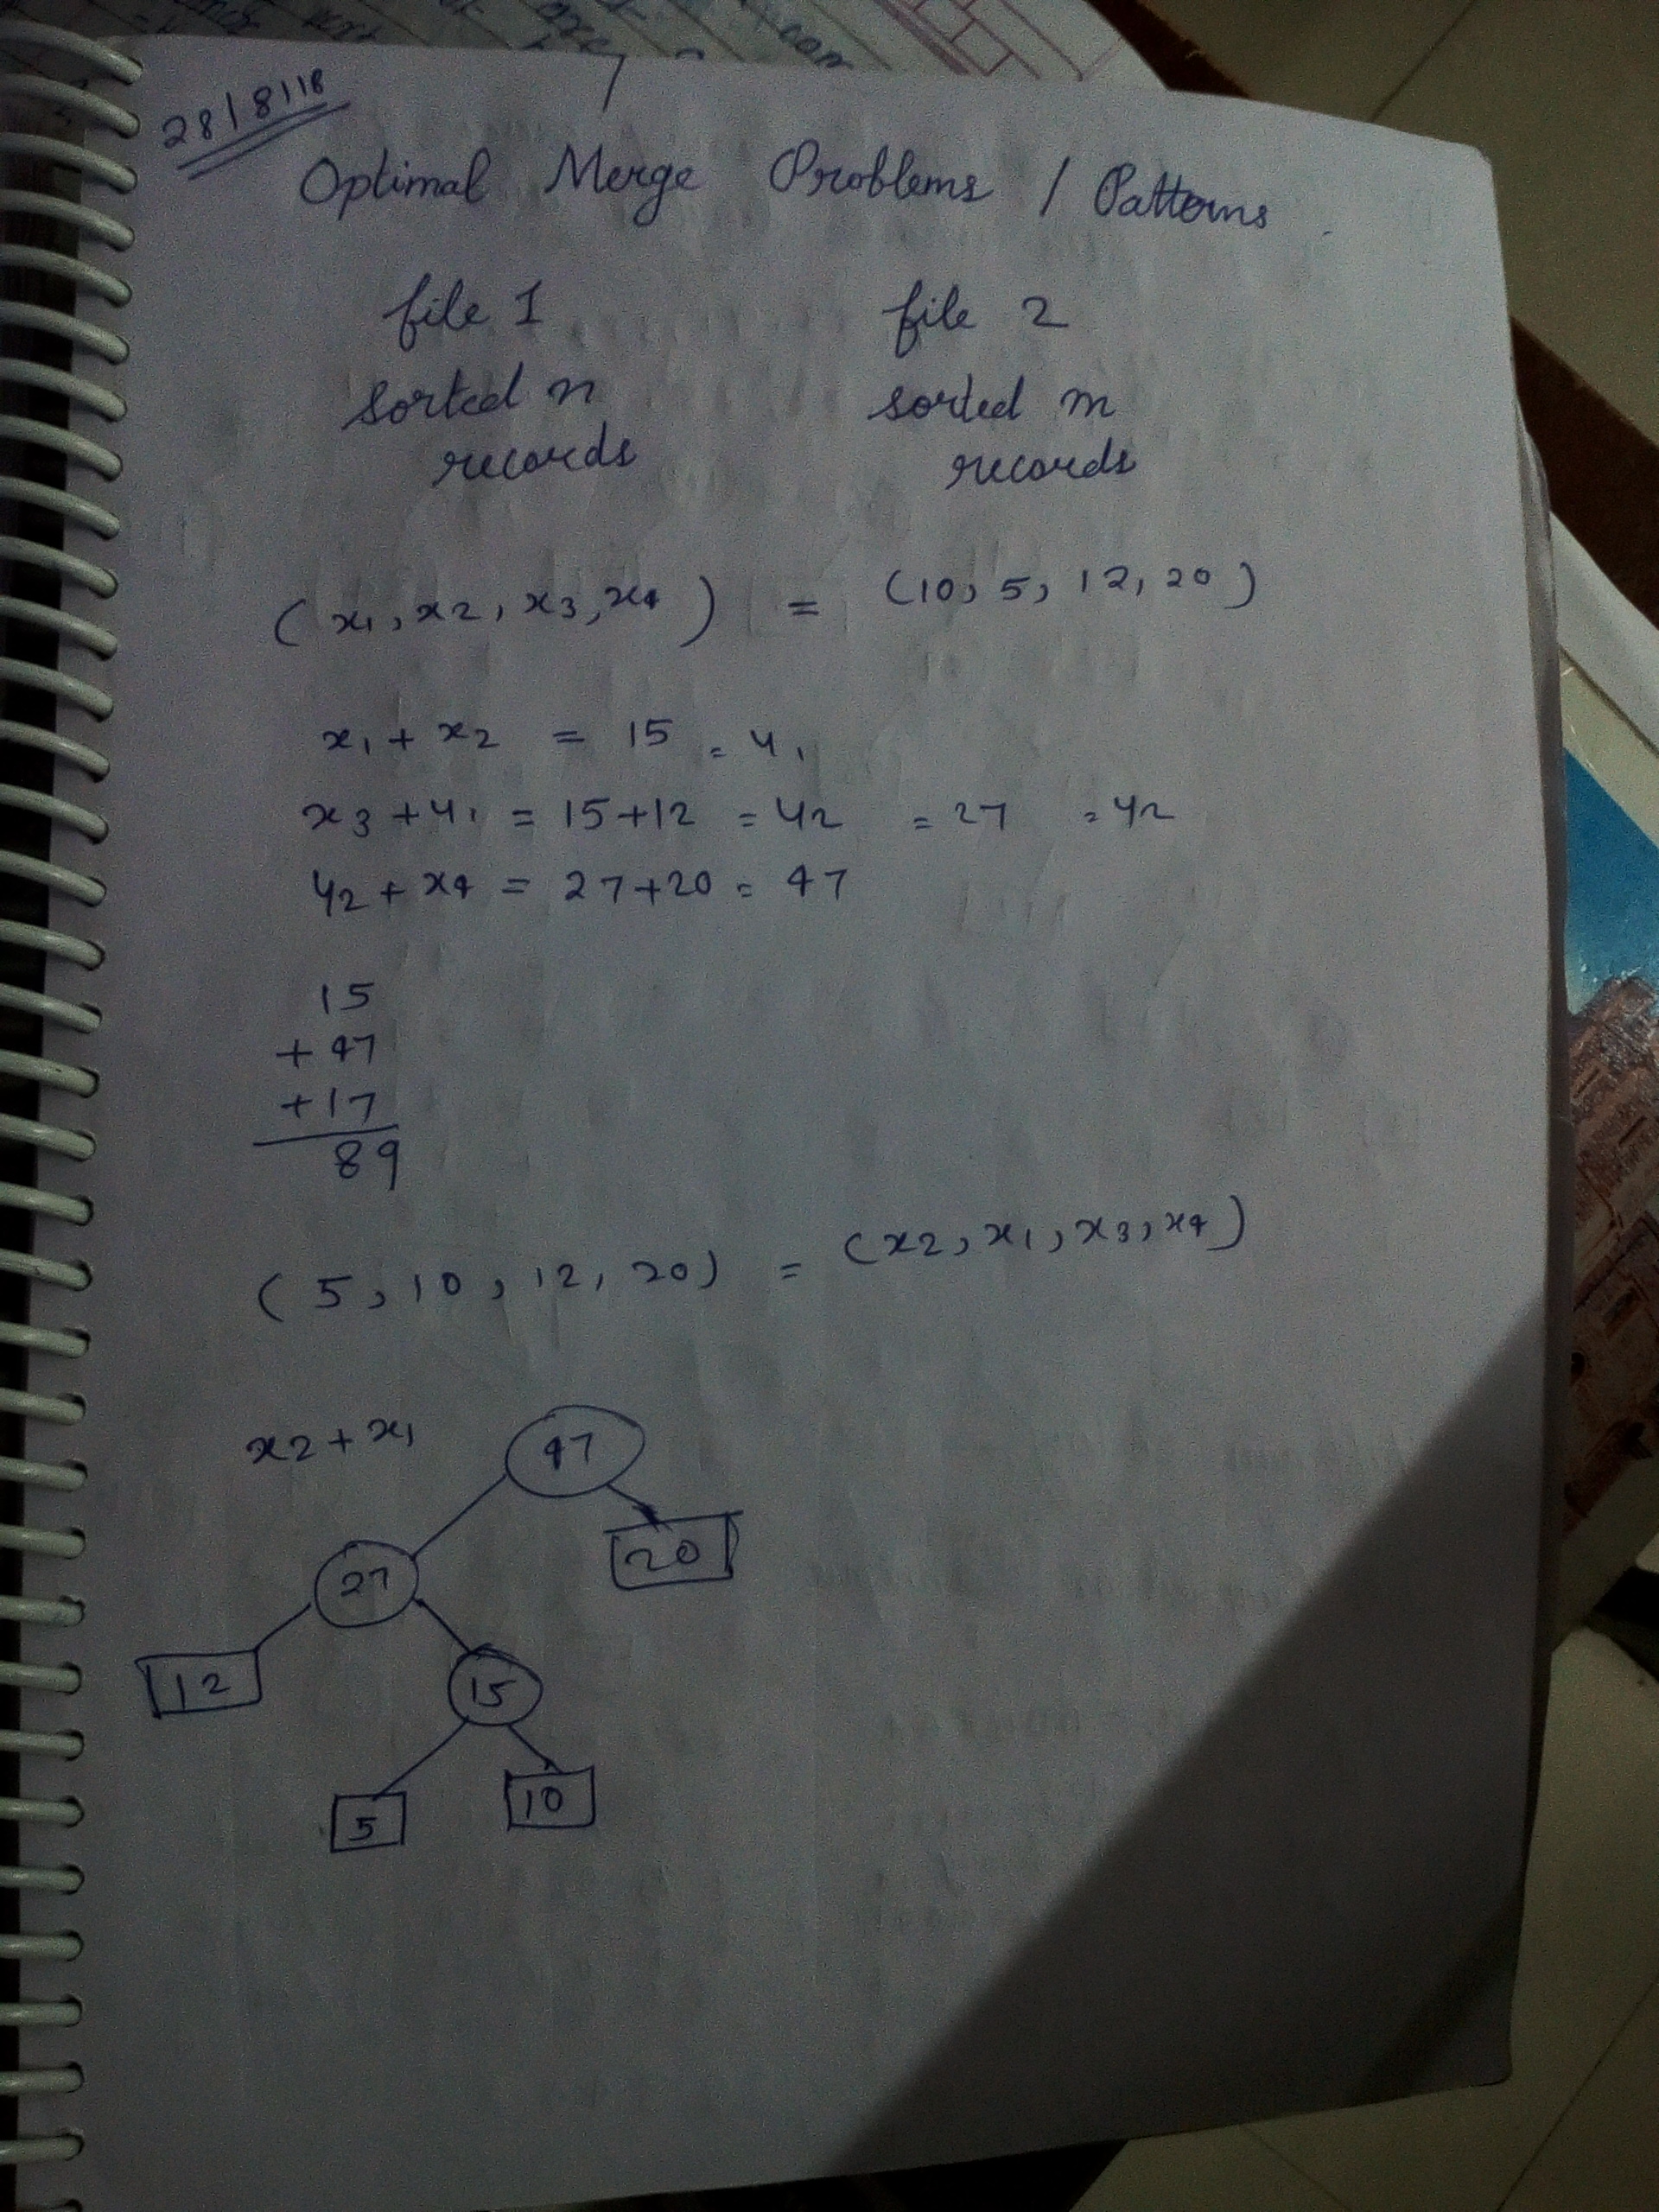 28/8/18
Optimal Merge Problems / Patterns
file 1 file 2
sorted n sorted m
records records
(x1, x2, x3, x4) = (10, 5, 12, 20)
x1 + x2 = 15 = y1
x3 + y1 = 15+12 = y2 = 27 = y2
y2 + x4 = 27+20 = 47
15
+ 47
+ 17
89
(5, 10, 12, 20) = (x2, x1, x3, x4)
x2 + x1 47
20
27
12
15
5 10